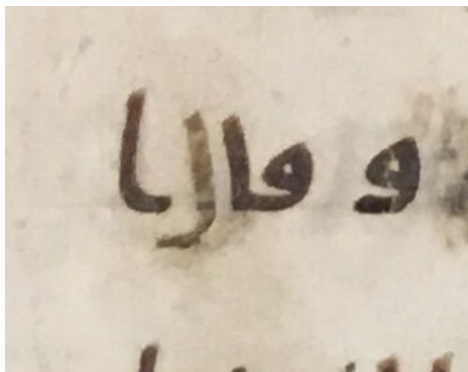 و قال ا